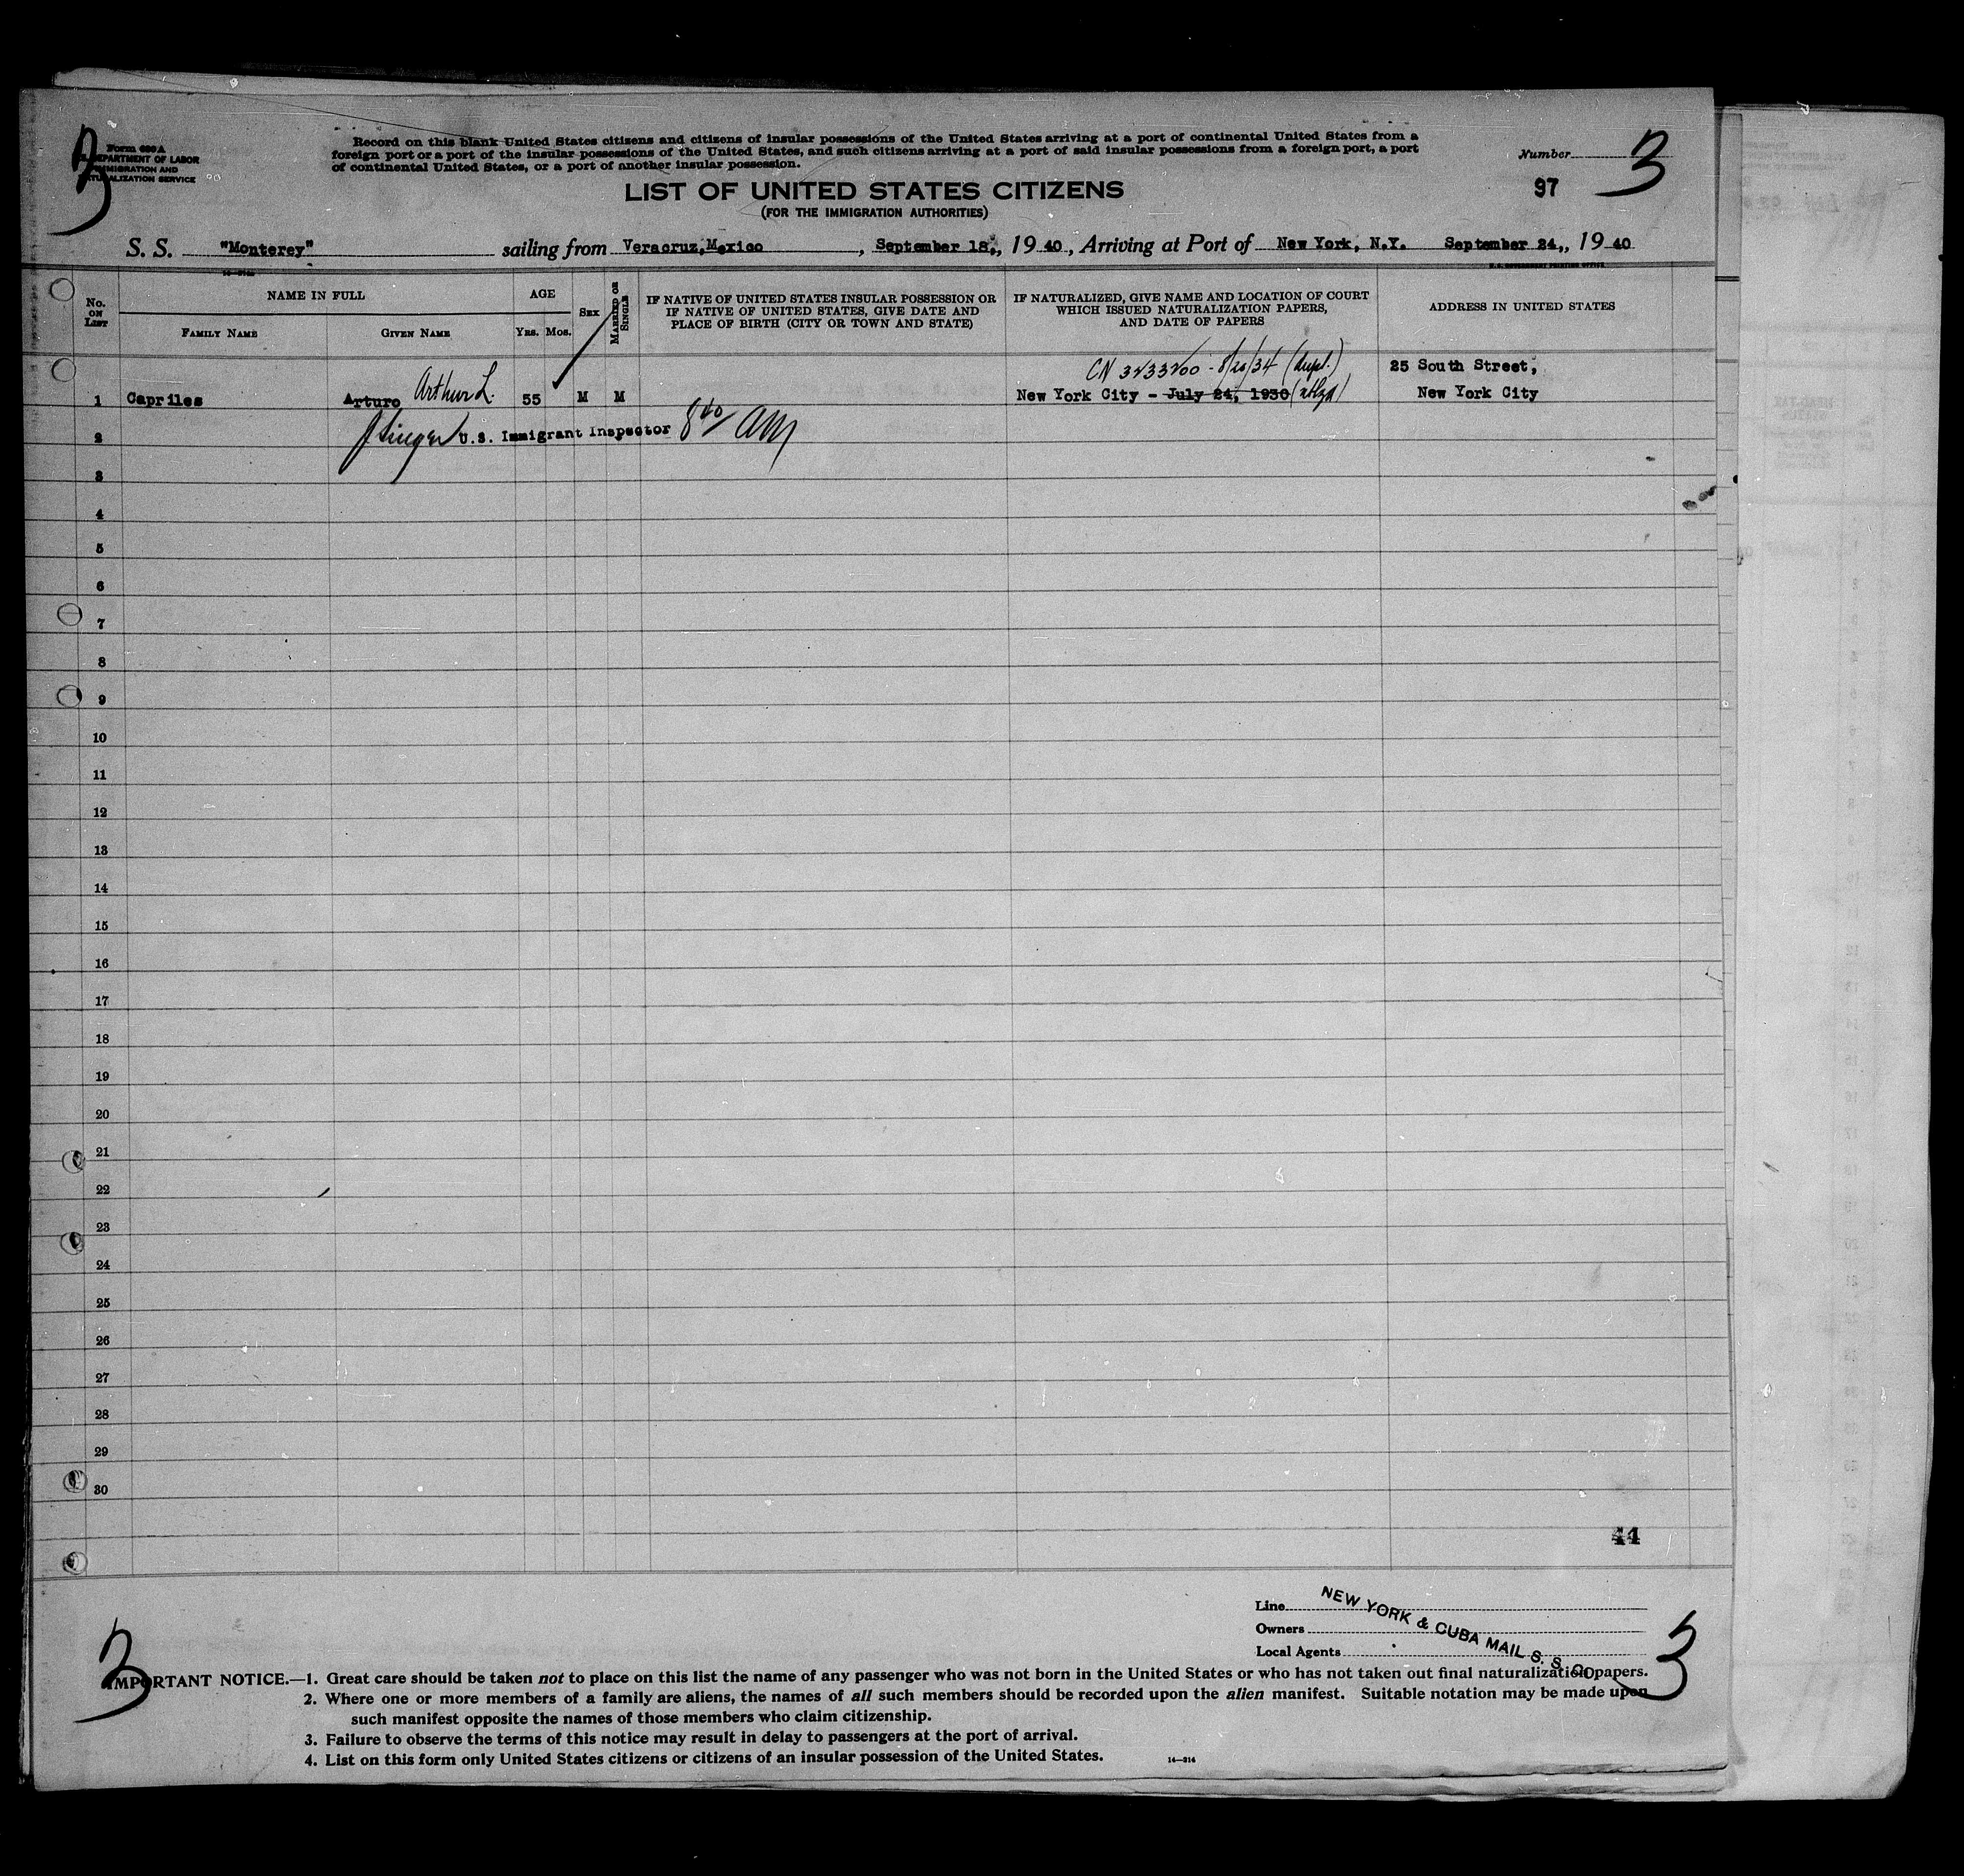 Form 630 A
U.S. DEPARTMENT OF LABOR
IMMIGRATION AND
NATURALIZATION SERVICE
3
Record on this blank United States citizens and citizens of insular possessions of the United States arriving at a port of continental United States from a
foreign port or a port of the insular possessions of the United States, and such citizens arriving at a port of said insular possessions from a foreign port, a port
of continental United States, or a port of another insular possession.
Number 3
97
LIST OF UNITED STATES CITIZENS
(FOR THE IMMIGRATION AUTHORITIES)
S. S. "Monterey" sailing from Veracruz, Mexico, September 18, 1940, Arriving at Port of New York, N.Y. September 24, 1940
No. ON LIST
NAME IN FULL
FAMILY NAME
GIVEN NAME
AGE
YRS. MOS.
SEX
MARRIED OR SINGLE
IF NATIVE OF UNITED STATES INSULAR POSSESSION OR
IF NATIVE OF UNITED STATES, GIVE DATE AND
PLACE OF BIRTH (CITY OR TOWN AND STATE)
IF NATURALIZED, GIVE NAME AND LOCATION OF COURT
WHICH ISSUED NATURALIZATION PAPERS,
AND DATE OF PAPERS
ADDRESS IN UNITED STATES
CN 3233200 - 8/20/34 (dupl.)
25 South Street,
1 Capriles Arturo Arthur L. 55 M M New York City - July 24, 1930 New York City
2 U.S. Immigrant Inspector 8 40 AM
3
4
5
6
7
8
9
10
11
12
13
14
15
16
17
18
19
20
21
22
23
24
25
26
27
28
29
30
44
Line
Owners
Local Agents
NEW YORK & CUBA MAIL S. S. CO
3
3
IMPORTANT NOTICE.—1. Great care should be taken not to place on this list the name of any passenger who was not born in the United States or who has not taken out final naturalization papers.
2. Where one or more members of a family are aliens, the names of all such members should be recorded upon the alien manifest. Suitable notation may be made upon
such manifest opposite the names of those members who claim citizenship.
3. Failure to observe the terms of this notice may result in delay to passengers at the port of arrival.
4. List on this form only United States citizens or citizens of an insular possession of the United States.
14—314